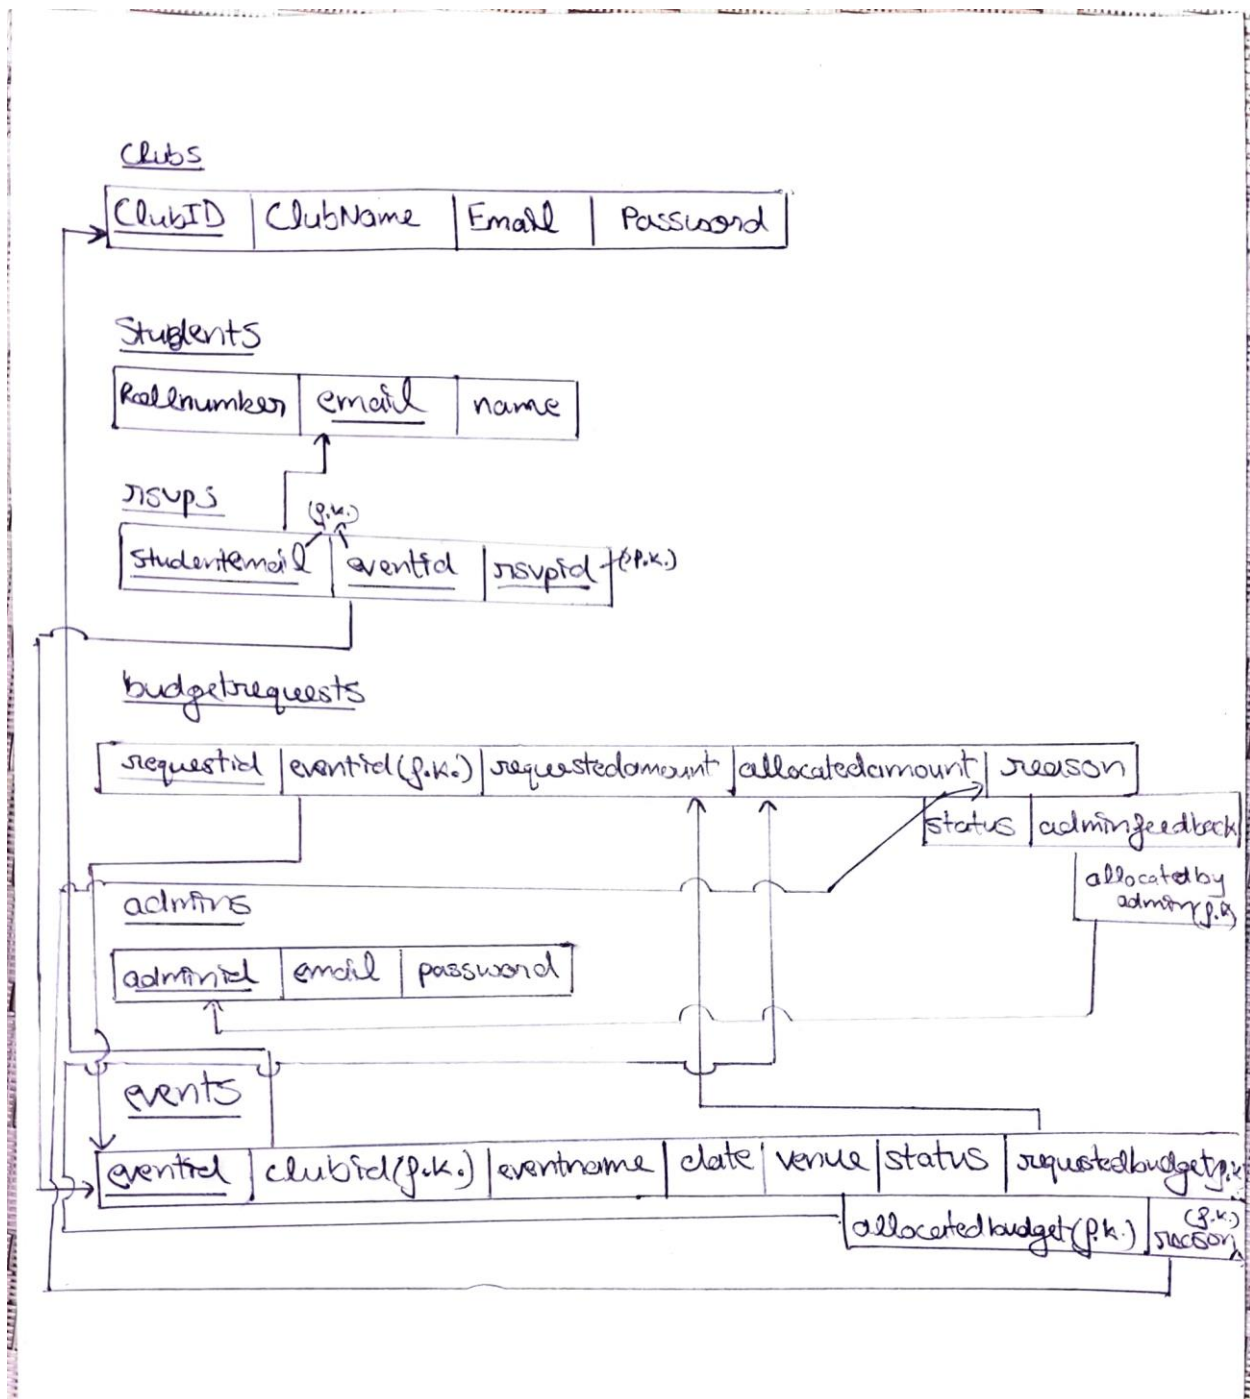 Clubs
ClubID ClubName Email Password
Students
Rollnumber email name
rsvps
(f.k.)
studentemail eventid rsvpid (P.K.)
budgetrequests
requestid eventid(f.k.) requestedamount allocatedamount reason
status adminfeedback
allocatedby
admin(f.k)
admins
adminid email password
events
eventid clubid(f.k.) eventname date venue status requestedbudget(f.k
allocatedbudget(f.k.) (f.k.)
reason